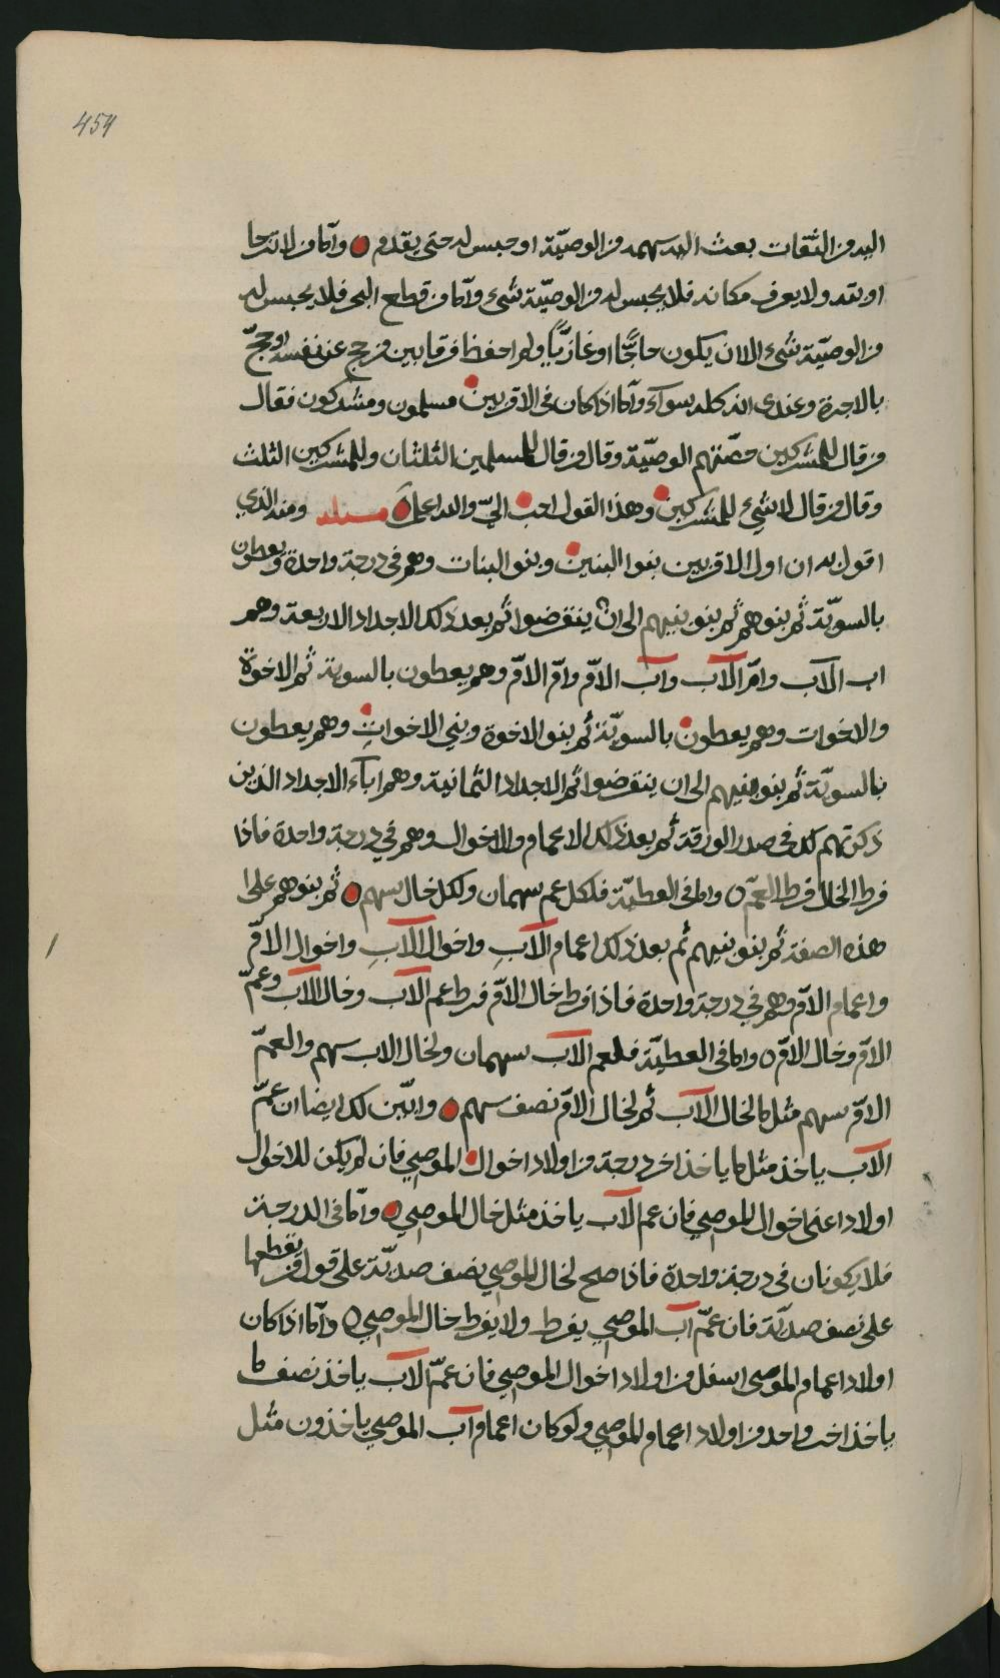 454
اليه من الثقات بعث اليه سهمه من الوصيّة او حبس له حتى يقدم ٥ وامّا من لا ترجا
او بته ولا يعرف مكانه فلا يحبس له من الوصيّة شىء وامّا من قطع البحر فلا يحبس له
من الوصيّة شىء الا ان يكون حاجًّا او غازيًّا ولم احفظ فرقا بين من حج عن نفسه او حجّ
بالاجرة وعندى انه كله سوآء وامّا اذا كان فى الاقربين مسلمون ومشركون فقال
من قال للمشركين حصّتهم الوصيّة وقال من قال للمسلمين الثلثان وللمشركين الثلث
وقال من قال لا شىء للمشركين وهذا القول احب اليّ والله اعلم ٥ مسئلة ومنه الذي
اقول به ان اول الاقربين بنوا البنين وبنو البنات وهم في درجة واحدة ويعطون
بالسويّة ثم بنوهم ثم بنو بنيهم الى ان ينقرضوا ثم بعد ذلك الاجداد الاربعة وهم
اب الآب وامّ الآب وآب الامّ وامّ الامّ وهم يعطون بالسوية ثم الاخوة
والاخوات وهم يعطون بالسويّة ثم بنو الاخوة وبني الاخواتِ وهم يعطون
بالسويّة ثم بنو بنيهم الى ان ينقرضوا ثم الاجداد الثمانية وهم اباآء الاجداد الذين
ذكرتهم لك فى صدر الورقة ثم بعد ذلك الاعمام والاخوال وهم في درجة واحدة فاذا
فرط الخال فرط العمّ ٥ واما فى العطيّة فلكل عم سهمان ولكل خال سهم ٥ ثم بنوهم على
هذه الصفة ثم بنو بنيهم ثم بعد ذلك اعمام الآبِ واخوال الآبِ واخوال الامّ
واعمام الامّ وهم في درجة واحدة فاذا فرط خال الامّ فرط عم الآب وخال الآب وعمّ
الامّ وخال الامّ ٥ واما فى العطيّة فلعم الآب سهمان ولخال الاب سهم والعمّ
الامّ سهم مثل ما لخال الآب ثم لخال الامّ نصف سهم ٥ وابيّن لك ايضا ان عمّ
الآب ياخذ مثل ما ياخذ اخر درجة من اولاد اخوال الموصي فان لم يكن للاخوال
اولاد اعنى اخوال الموصي فان عم الآب ياخذ مثل خال الموصي ٥ وامّا فى الدرجة
فلا يكونان فى درجة واحدة فاذا صلح لخال الموصي نصف صديّة على قول من يقطعها
على نصف صديّة فان عمّ آب الموصي يفرط ولا يفرط خال الموصي ٥ وامّا اذا كان
اولاد اعمام الموصى اسفل من اولاد اخوال الموصي فان عمّ الآب ياخذ نصف ما
ياخذ اخر واحد من اولاد اعمام الموصي ولو كان اعمام آب الموصي ياخذون مثل